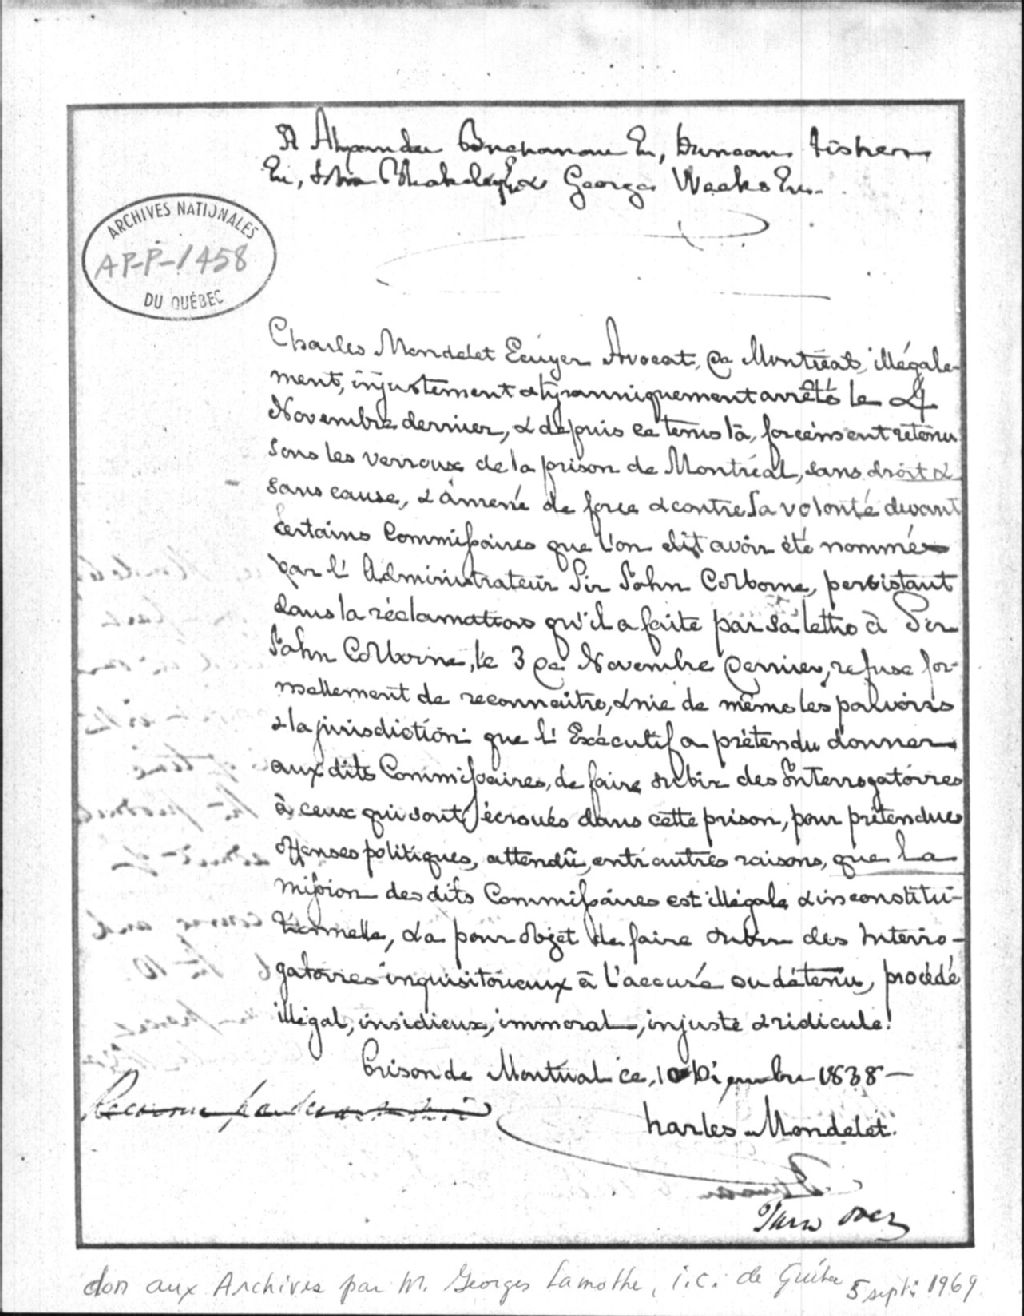 A Alexander Buchanan Ec, Duncan Fisher
Ec, John Bleakley Ec & Georges Weeks Ec.
ARCHIVES NATIONALES
AP-P-1458
DU QUÉBEC
Charles Mondelet Ecuyer Avocat, de Montréal, illégale-
ment, injustement & tyranniquement arrêté le 4
Novembre dernier, & depuis ce tems là, forcément retenu
sous les verroux de la prison de Montréal, sans droit &
sans cause, & amené de force & contre sa volonté devant
certains Commissaires que l'on dit avoir été nommés
par l'Administrateur Sir John Colborne, persistant
dans la réclamation qu'il a faite par sa lettre à Sir
John Colborne, le 3 de Novembre dernier, refuse for-
mellement de reconnaitre, & nie de même les pouvoirs
& la jurisdiction que l'Exécutif a prétendu donner
aux dits Commissaires, de faire subir des Interrogatoires
à ceux qui sont écroués dans cette prison, pour prétendues
offenses politiques, attendu, entr'autres raisons, que la
mission des dits Commissaires est illégale & inconstitu-
tionnelle, & a pour objet de faire subir des Interro-
gatoires inquisitoriaux à l'accusé ou détenu, procédé
illégal, insidieux, immoral, injuste & ridicule!
Prison de Montréal ce, 10 Décembre 1838 —
Charles Mondelet.
Turn over
don aux Archives par M. Georges Lamothe, i.c. de Québec 5 sept. 1969.